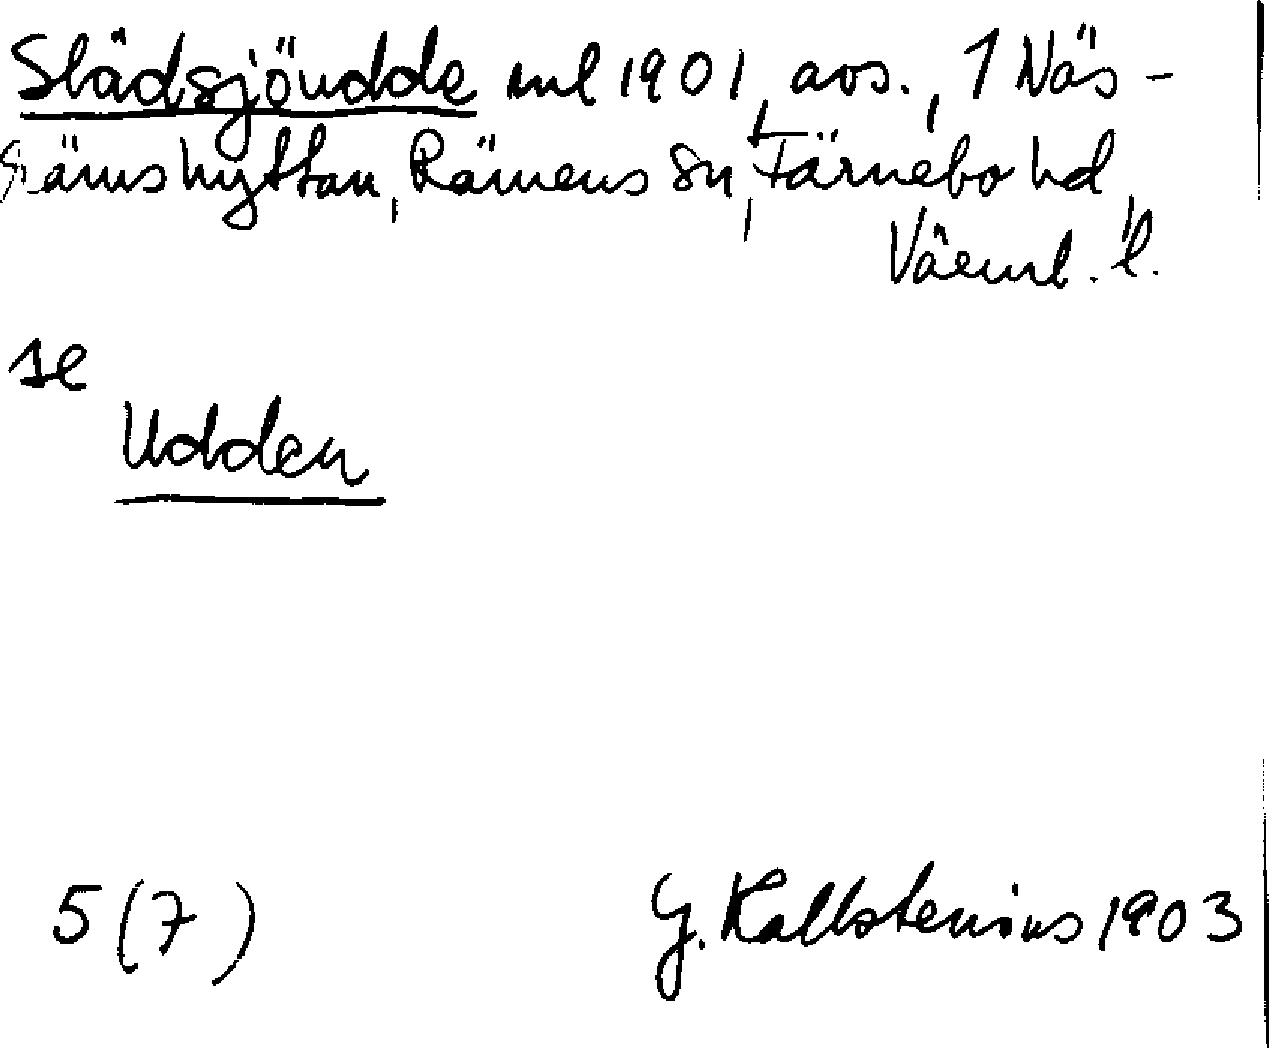 Slädsjöudde ml 1901, avs., 1 Näs-
rämshyttan, Rämens sn, Färnebo hd,
Värml. l.
se
Udden
5 (7)
G. Kallstenius 1903